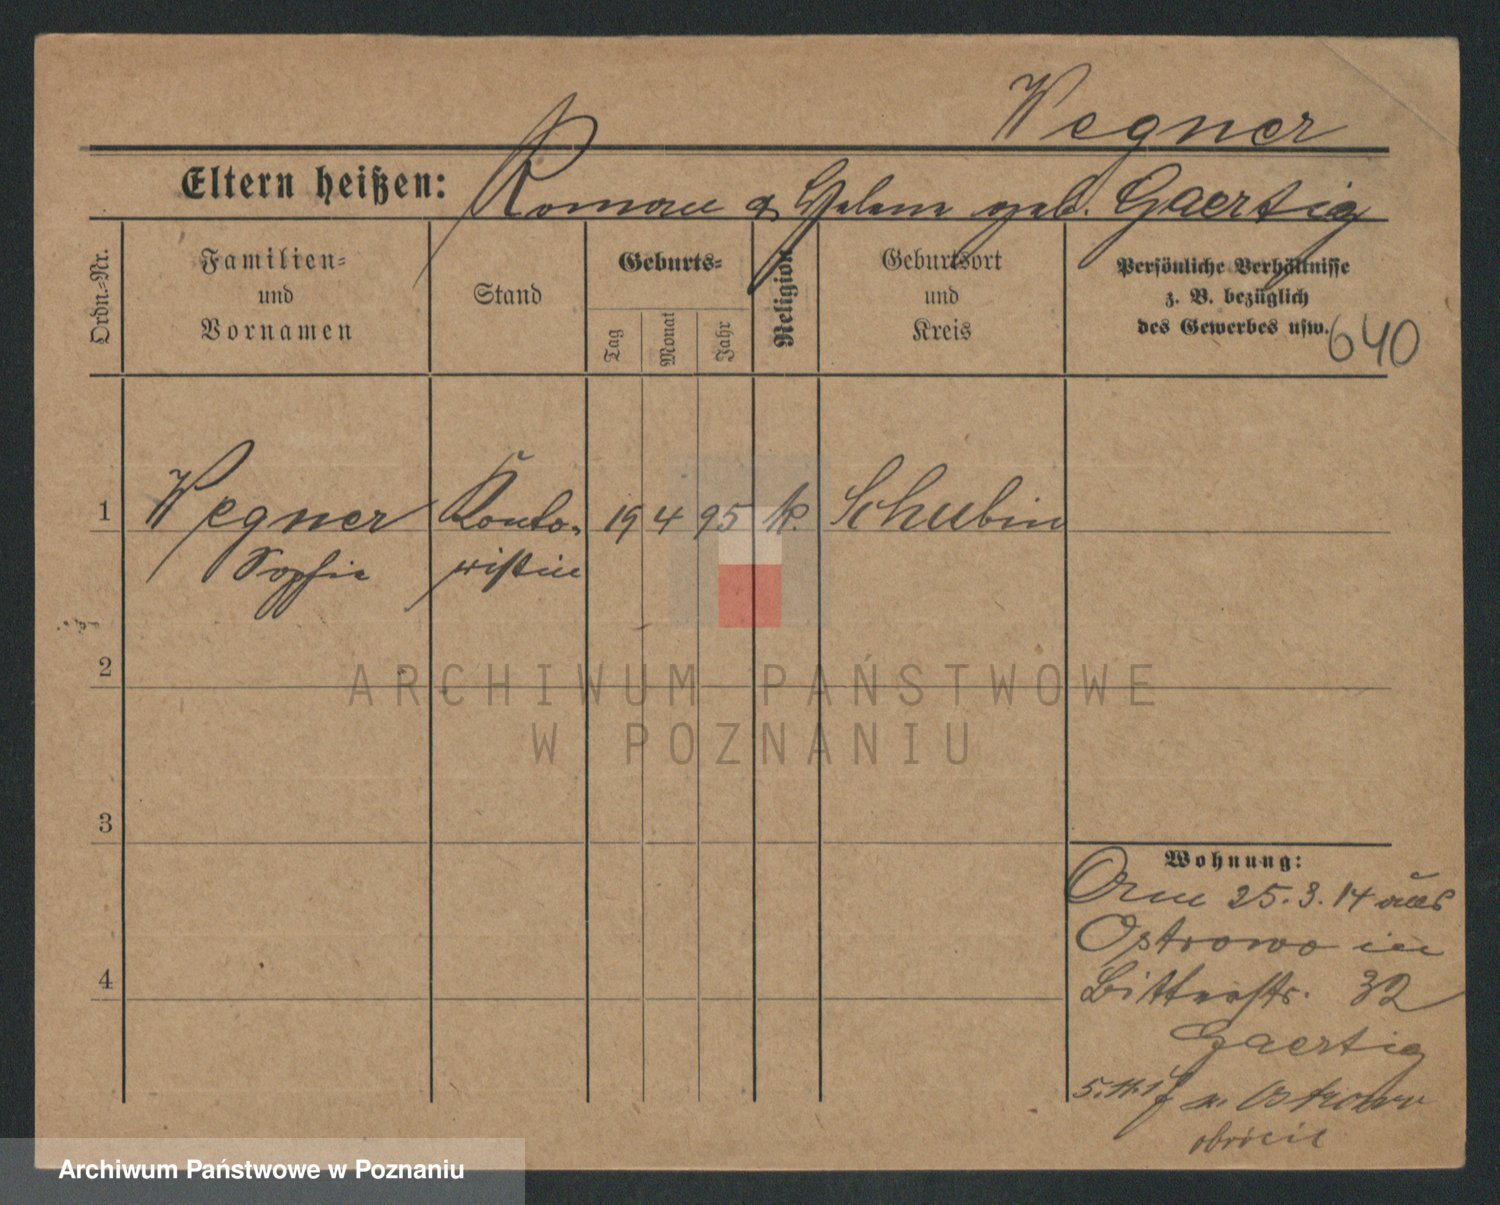 Wegner
Eltern heißen: Roman & Helene geb. Gaertig
Ordn.-Nr.
Familien-
und
Vornamen
Stand
Geburts-
Tag
Monat
Jahr
Religion
Geburtsort
und
Kreis
Persönliche Verhältnisse
z. B. bezüglich
des Gewerbes usw.
640
1 Wegner Konto- 19 4 95 k. Schubin
Sophie ristin
2
ARCHIWUM PAŃSTWOWE
W POZNANIU
3
Wohnung:
25.3.14 aus
Ostrowo in
Bitterstr. 32
4
Gaertig
n. Ostrowo
Archiwum Państwowe w Poznaniu